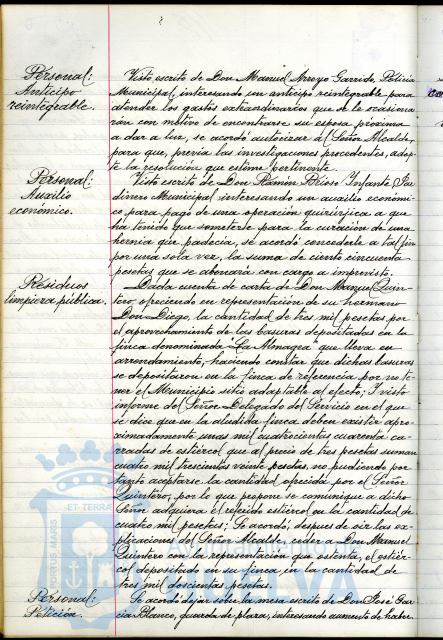 Personal:
Anticipo
reintegrable.
Visto escrito de Don Manuel Arroyo Garrido, Policia
Municipal, interesando un anticipo reintegrable para
atender los gastos extraordinarios que se le ocasiona-
rán con motivo de encontrarse su esposa próxima
a dar a luz, se acordó autorizar al Señor Alcalde,
para que, previa las investigaciones procedentes, adop-
te la resolución que estime pertinente.
Personal:
Auxilio
económico.
Visto escrito de Don Ramón Infante, Jar-
dinero Municipal interesando un auxilio económi-
co, para pago de una operación quirúrjica a que
ha tenido que someterse para la curación de una
hernia que padecía, se acordó concederle a tal fin
por una sola vez, la suma de ciento cincuenta
pesetas que se abonará con cargo a imprevisto.
Residuos
limpieza pública.
Dada cuenta de carta de Don Manuel Quin-
tero, ofreciendo en representación de su hermano
Don Diego, la cantidad de tres mil pesetas por
el aprovechamiento de las basuras depositadas en la
finca denominada "La Monagra" que lleva en
arrendamiento, haciendo constar que dichas basuras
se depositaron en la finca de referencia, por no te-
ner el Municipio sitio adaptable al efecto; y visto
informe del Señor Delegado del Servicio en el que
se dice que en la aludida finca deben existir apro-
ximadamente unas mil cuatrocientas cuarenta ca-
rradas de estiercol que al precio de tres pesetas suman
cuatro mil trescientas veinte pesetas, no pudiendo por
tanto aceptarse la cantidad ofrecida por el Señor
Quintero, por lo que propone se comunique a dicho
Señor adquiera el referido estiercol en la cantidad de
cuatro mil pesetas; Se acordó, despues de oir las ex-
plicaciones del Señor Alcalde, ceder a Don Manuel
Quintero con la representación que ostenta, el estiér-
col depositado en su finca en la cantidad de
tres mil doscientas pesetas.
Personal:
Petición.
Se acordó dejar sobre la mesa escrito de Don José Gar-
cía Blanco, guarda de plaza, interesando aumento de haber.
PORTUS MARIS ET TERRAE
HUELVA